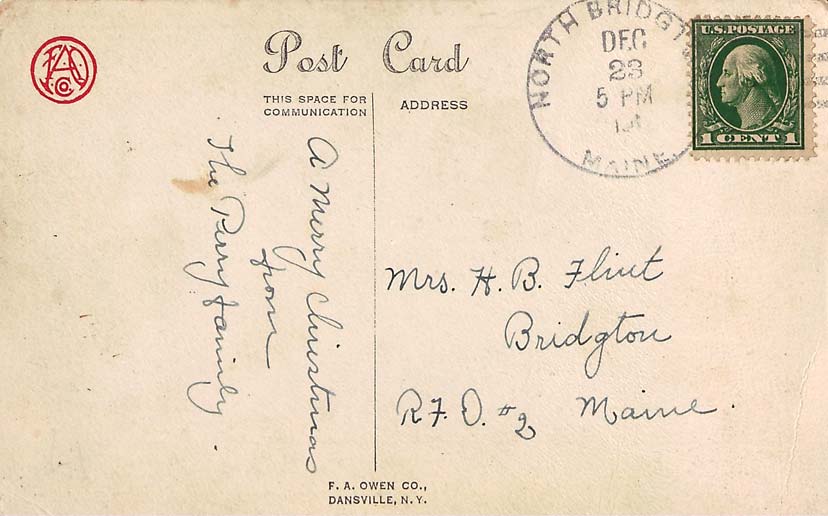 FAO
Co.
Post Card
THIS SPACE FOR
COMMUNICATION
ADDRESS
NORTH BRIDGT
DEC
23
5 PM
MAINE
U.S. POSTAGE
1 CENT 1
A Merry Christmas
from
The Perry family.
Mrs. H. B. Flint
Bridgton
R.F.D. #2 Maine.
F. A. OWEN CO.,
DANSVILLE, N.Y.